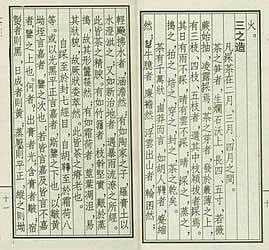 火。
三之造
凡採茶在二月、三月、四月之間。
茶之笋者，生爛石沃土，長四、五寸，若薇
蕨始抽，凌露採焉。茶之芽者，發於叢薄之上，
有三枝、四枝、五枝者，選其中枝穎拔者採焉。
其日有雨不採，晴有雲不採。晴，採之、蒸之、
搗之、拍之、焙之、穿之、封之、茶之乾矣。
茶有千萬狀，鹵莽而言，如胡人靴者，蹙縮
然；犎牛臆者，廉襜然；浮雲出山者，輪囷然；
輕飈拂水者，涵澹然。有如陶家之子，羅膏土以
水澄泚之。又如新治地者，遇暴雨流潦之所經。
此皆茶之精腴。有如竹籜者，枝幹堅實，艱於蒸
搗，故其形籭簁然。有如霜荷者，莖葉凋沮，易
其狀貌，故厥狀委萃然。此皆茶之瘠老者也。
自採至於封七經目，自胡靴至於霜荷八
等。或以光黑平正言嘉者，斯鑒之下也；以皺黃
坳垤言佳者，鑒之次也；若皆言嘉及皆言不嘉
者，鑒之上也。何者？出膏者光，含膏者皺；宿
製者則黑，日成者則黃；蒸壓則平正，縱之